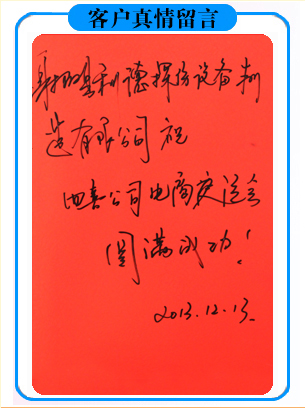 客户真情留言
射阳县利德探伤设备制
造有限公司 祝
四喜公司电商交流会
圆满成功!
2013.12.13